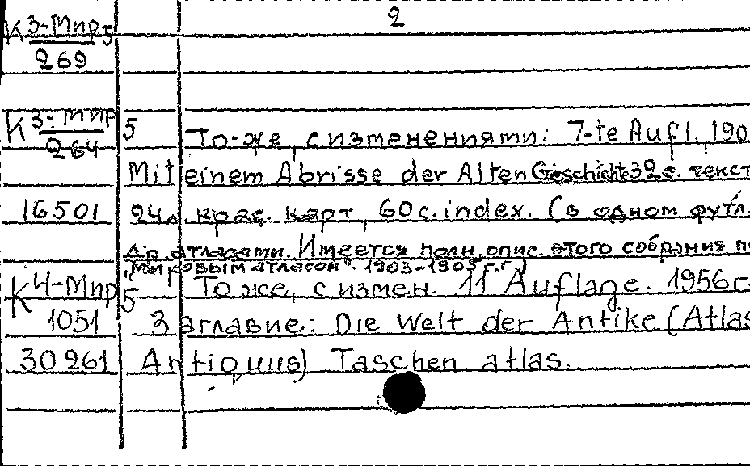 2
К 3-Мир 5
269
К 3-Мир 5 То-же, с изменениями: 7-te Aufl. 190
264
Mit einem Abrisse der Alten Geschichte 32 с. текст
16501 24 л. крас. карт, 60 с. index. (в одном футл.
др. атласами. Имеется полн. опис. этого собрания п
"Мировым атласом". 1903-1905 г.г.)
К 4-Мир 5 То же, с измен. 11 Auflage. 1956 г
1051 Заглавие: Die Welt der Antike (Atlas
30261 Antiquus) Taschen atlas.